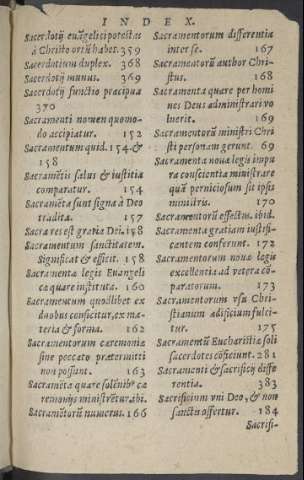 INDEX.
Sacerdotij euãgelici potestas
à Christo ortũ habet. 359
Sacerdotium duplex. 368
Sacerdotij munus. 369
Sacerdotij functio præcipua
370
Sacramenti nomen quomo-
do accipiatur. 152
Sacramentum quid. 154. &
158
Sacramẽtis salus & iustitia
comparatur. 154
Sacramẽta sunt signa à Deo
tradita. 157
Sacra res est gratia Dei. 158
Sacramentum sanctitatem
significat & efficit. 158
Sacramenta legis Euangeli
cæ quare instituta. 160
Sacramentum quodlibet ex
duobus conficitur, ex ma-
teria & forma. 162
Sacramentorum cæremoniæ
sine peccato prætermitti
non possunt. 163
Sacramẽta quare solẽnibᵒ cæ
remonijs ministrẽtur. ibi.
Sacramẽtorũ numerus. 166
Sacramentorum differentia
inter se. 167
Sacramentorũ author Chri-
stus. 168
Sacramenta quare per homi
nes Deus administrari vo
luerit. 169
Sacramentorũ ministri Chri
sti personam gerunt. 69
Sacramenta nouæ legis impu
ra conscientia ministrare
quã perniciosum sit ipsis
ministris. 170
Sacramentorũ effectus. ibid.
Sacramenta gratiam iustifi-
cantem conferunt. 172
Sacramentorum nouæ legis
excellentia ad vetera cõ-
paratorum. 173
Sacramentorum vsu Chri-
stianum ædificium fulci-
tur. 175
Sacramẽtũ Eucharistiæ soli
sacerdotes cõficiunt. 281
Sacramenti & sacrificij diffe
rentia. 383
Sacrificium vni Deo, & non
sanctis offertur. 184
Sacrifi-